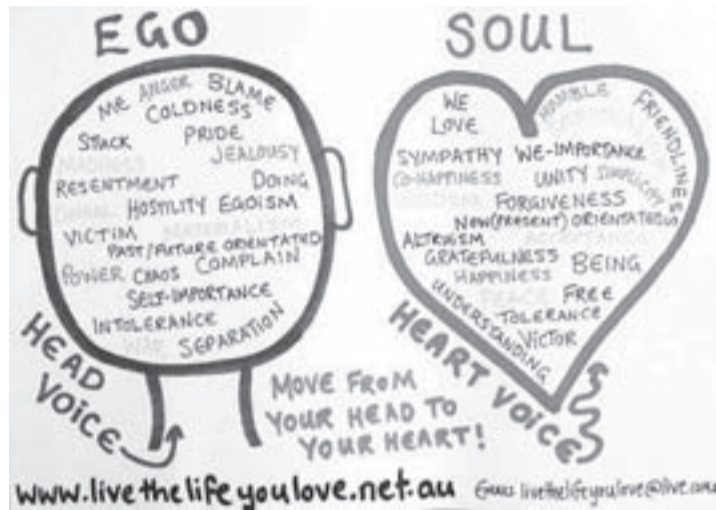 EGO
ME ANGER BLAME
COLDNESS
STUCK PRIDE
JEALOUSY
MADNESS
RESENTMENT DOING
DENIAL HOSTILITY EGOISM
MATERIALISM
VICTIM
PAST/FUTURE ORIENTATED
POWER CHAOS COMPLAIN
SELF-IMPORTANCE
INTOLERANCE
WAR SEPARATION
HEAD
VOICE
SOUL
WE HUMBLE FRIENDLINESS
LOVE
SYMPATHY WE-IMPORTANCE
CO-HAPPINESS UNITY SIMPLICITY
WISDOM FORGIVENESS
NOW(PRESENT) ORIENTATED
ALTRUISM ACCEPTANCE
GRATEFULNESS BEING
HAPPINESS
PEACE FREE
UNDERSTANDING TOLERANCE
VICTOR
HEART VOICE
MOVE FROM
YOUR HEAD TO
YOUR HEART!
www.livethelifeyoulove.net.au